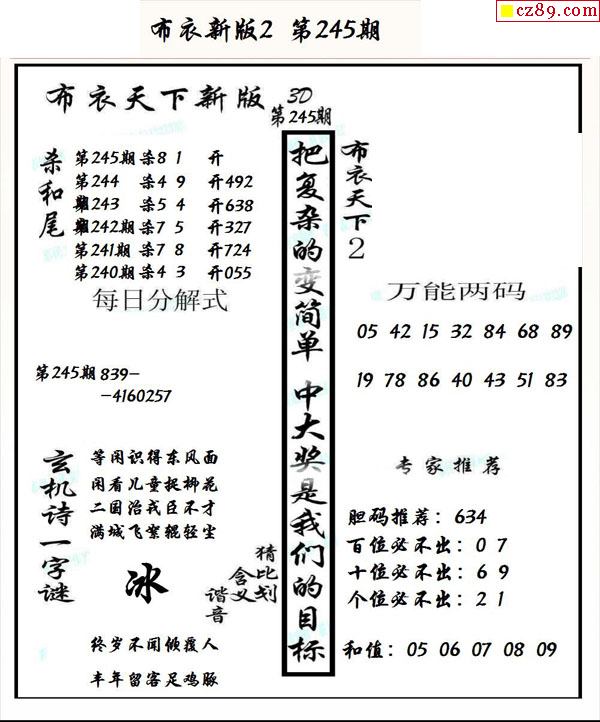 cz89.com
布衣新版2 第245期
布衣天下新版 3D
第245期
杀和尾
第245期 杀8 1 开
第244 杀4 9 开492
期243 杀5 4 开638
期242期 杀7 5 开327
第241期 杀7 8 开724
第240期 杀4 3 开055
每日分解式
第245期 839-
-4160257
玄机诗一字谜
等闲识得东风面
闲看儿童捉柳花
二国治戎臣不才
满城飞絮辊轻尘
冰
猜比划
含义
谐音
终岁不闻倾覆人
丰年留客足鸡豚
把复杂的变简单 中大奖是我们的目标
布衣天下2
万能两码
05 42 15 32 84 68 89
19 78 86 40 43 51 83
专家推荐
胆码推荐：634
百位必不出：0 7
十位必不出：6 9
个位必不出：2 1
和值：05 06 07 08 09